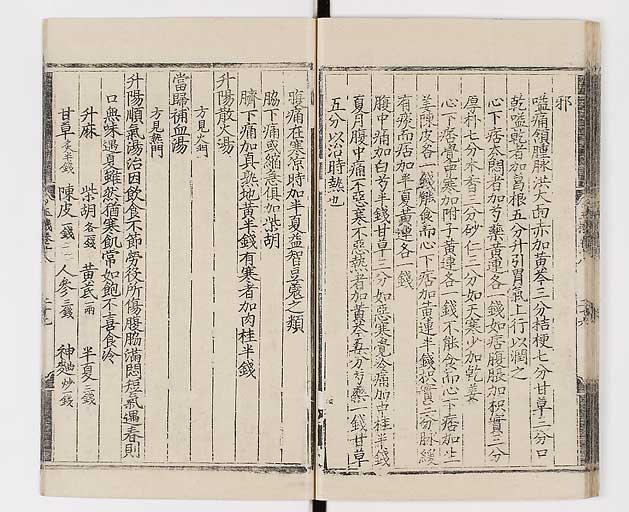 邪
嗌痛頷腫脉洪大面赤加黃芩三分桔梗七分甘草三分口
乾嗌乾者加葛根五分升引胃氣上行以潤之
心下痞太悶者加芍藥黃連各一錢如痞腹脹加枳實三分
厚朴七分木香三分砂仁三分如天寒少加乾姜
心下痞覺中寒加附子黃連各一錢不能食而心下痞加生
姜陳皮各一錢能食而心下痞加黃連半錢枳實三分脉緩
有痰而痞加半夏黃連各一錢
腹中痛加白芍半錢甘草三分如惡寒覺冷痛加中桂半錢
夏月腹中痛不惡寒不惡熱者加黃芩五分芍藥一錢甘草
五分以治時熱也
腹痛在寒凉時加半夏益智豆蔻之類
脇下痛或縮急俱加柴胡
臍下痛加真熟地黃半錢有寒者加肉桂半錢
升陽散火湯
方見火門
當歸補血湯
方見熱門
升陽順氣湯治因飲食不節勞役所傷腹脇滿悶短氣遇春則
口無味遇夏雖然猶寒飢常如飽不喜食冷
升麻 柴胡各錢 黃芪一兩 半夏三錢
甘草炙半錢 陳皮一錢 人參三錢 神麯炒一錢